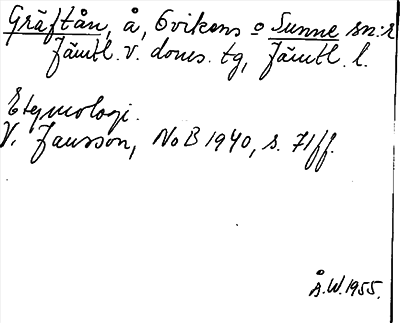 Gräftån, å, Ovikens o Sunne sn:r
Jämtl. v. doms. tg, Jämtl. l.
Etymologi.
V. Jansson, NoB 1940, s. 71 ff.
Å.W. 1955.